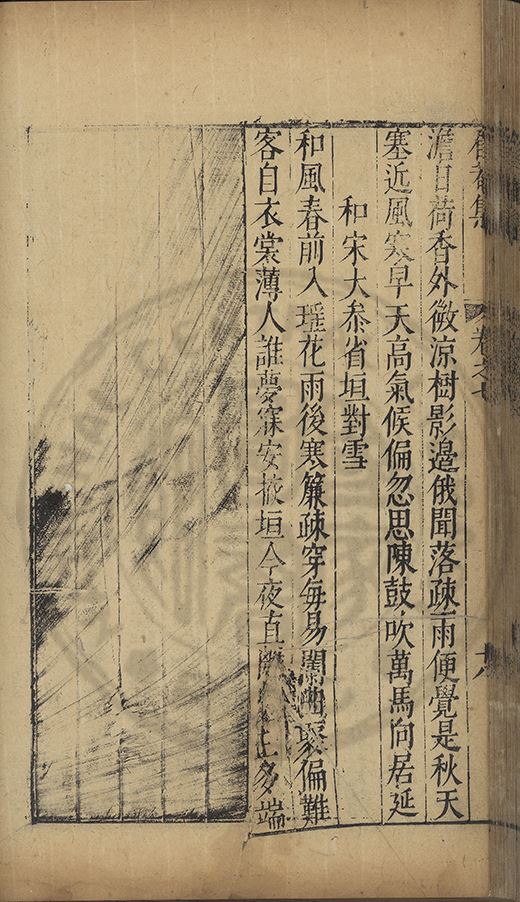 集 卷之七
澹日荷香外微涼樹影邊俄聞落疎雨便覺是秋天
塞近風寒早天高氣候偏忽思陳鼓吹萬馬向居延
和宋大叅省垣對雪
和風春前入瑶花雨後寒簾疎穿每易闌曲聚偏難
客自衣裳薄人誰夢寐安掖垣今夜直 上多端